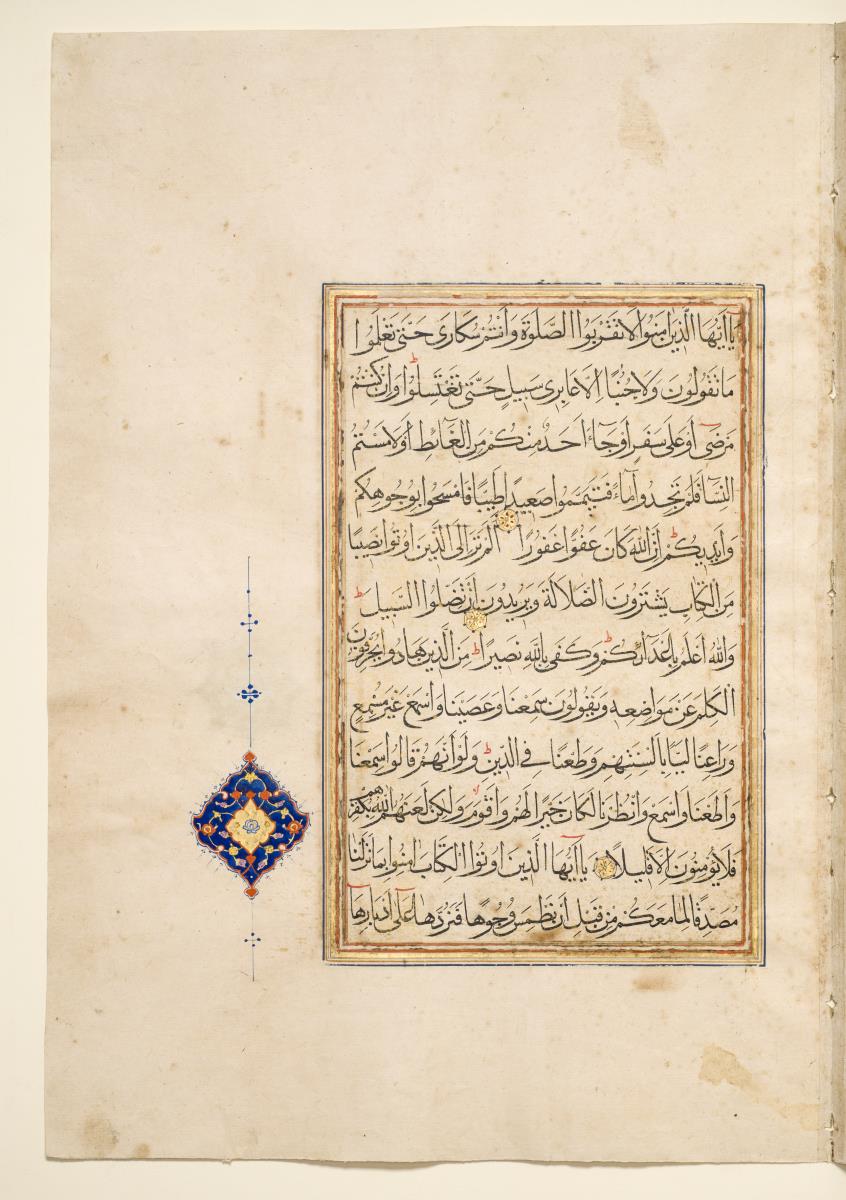 يَا أَيُّهَا الَّذِينَ آمَنُوا لَا تَقْرَبُوا الصَّلَوةَ وَأَنْتُمْ سُكَارَى حَتَّى تَعْلَمُوا
مَا تَقُولُونَ وَلَا جُنُبًا إِلَّا عَابِرِي سَبِيلٍ حَتَّى تَغْتَسِلُوا وَإِنْ كُنْتُمْ
مَرْضَى أَوْ عَلَى سَفَرٍ أَوْ جَاءَ أَحَدٌ مِنْكُمْ مِنَ الْغَائِطِ أَوْ لَامَسْتُمُ
النِّسَاءَ فَلَمْ تَجِدُوا مَاءً فَتَيَمَّمُوا صَعِيدًا طَيِّبًا فَامْسَحُوا بِوُجُوهِكُمْ
وَأَيْدِيكُمْ إِنَّ اللَّهَ كَانَ عَفُوًّا غَفُورًا أَلَمْ تَرَ إِلَى الَّذِينَ أُوتُوا نَصِيبًا
مِنَ الْكِتَابِ يَشْتَرُونَ الضَّلَالَةَ وَيُرِيدُونَ أَنْ تَضِلُّوا السَّبِيلَ
وَاللَّهُ أَعْلَمُ بِأَعْدَائِكُمْ وَكَفَى بِاللَّهِ نَصِيرًا مِنَ الَّذِينَ هَادُوا يُحَرِّفُونَ
الْكَلِمَ عَنْ مَوَاضِعِهِ وَيَقُولُونَ سَمِعْنَا وَعَصَيْنَا وَاسْمَعْ غَيْرَ مُسْمَعٍ
وَرَاعِنَا لَيًّا بِأَلْسِنَتِهِمْ وَطَعْنًا فِي الدِّينِ وَلَوْ أَنَّهُمْ قَالُوا سَمِعْنَا
وَأَطَعْنَا وَاسْمَعْ وَانْظُرْنَا لَكَانَ خَيْرًا لَهُمْ وَأَقْوَمَ وَلَكِنْ لَعَنَهُمُ اللَّهُ بِكُفْرِهِمْ
فَلَا يُؤْمِنُونَ إِلَّا قَلِيلًا يَا أَيُّهَا الَّذِينَ أُوتُوا الْكِتَابَ آمِنُوا بِمَا نَزَّلْنَا
مُصَدِّقًا لِمَا مَعَكُمْ مِنْ قَبْلِ أَنْ نَطْمِسَ وُجُوهًا فَنَرُدَّهَا عَلَى أَدْبَارِهَا